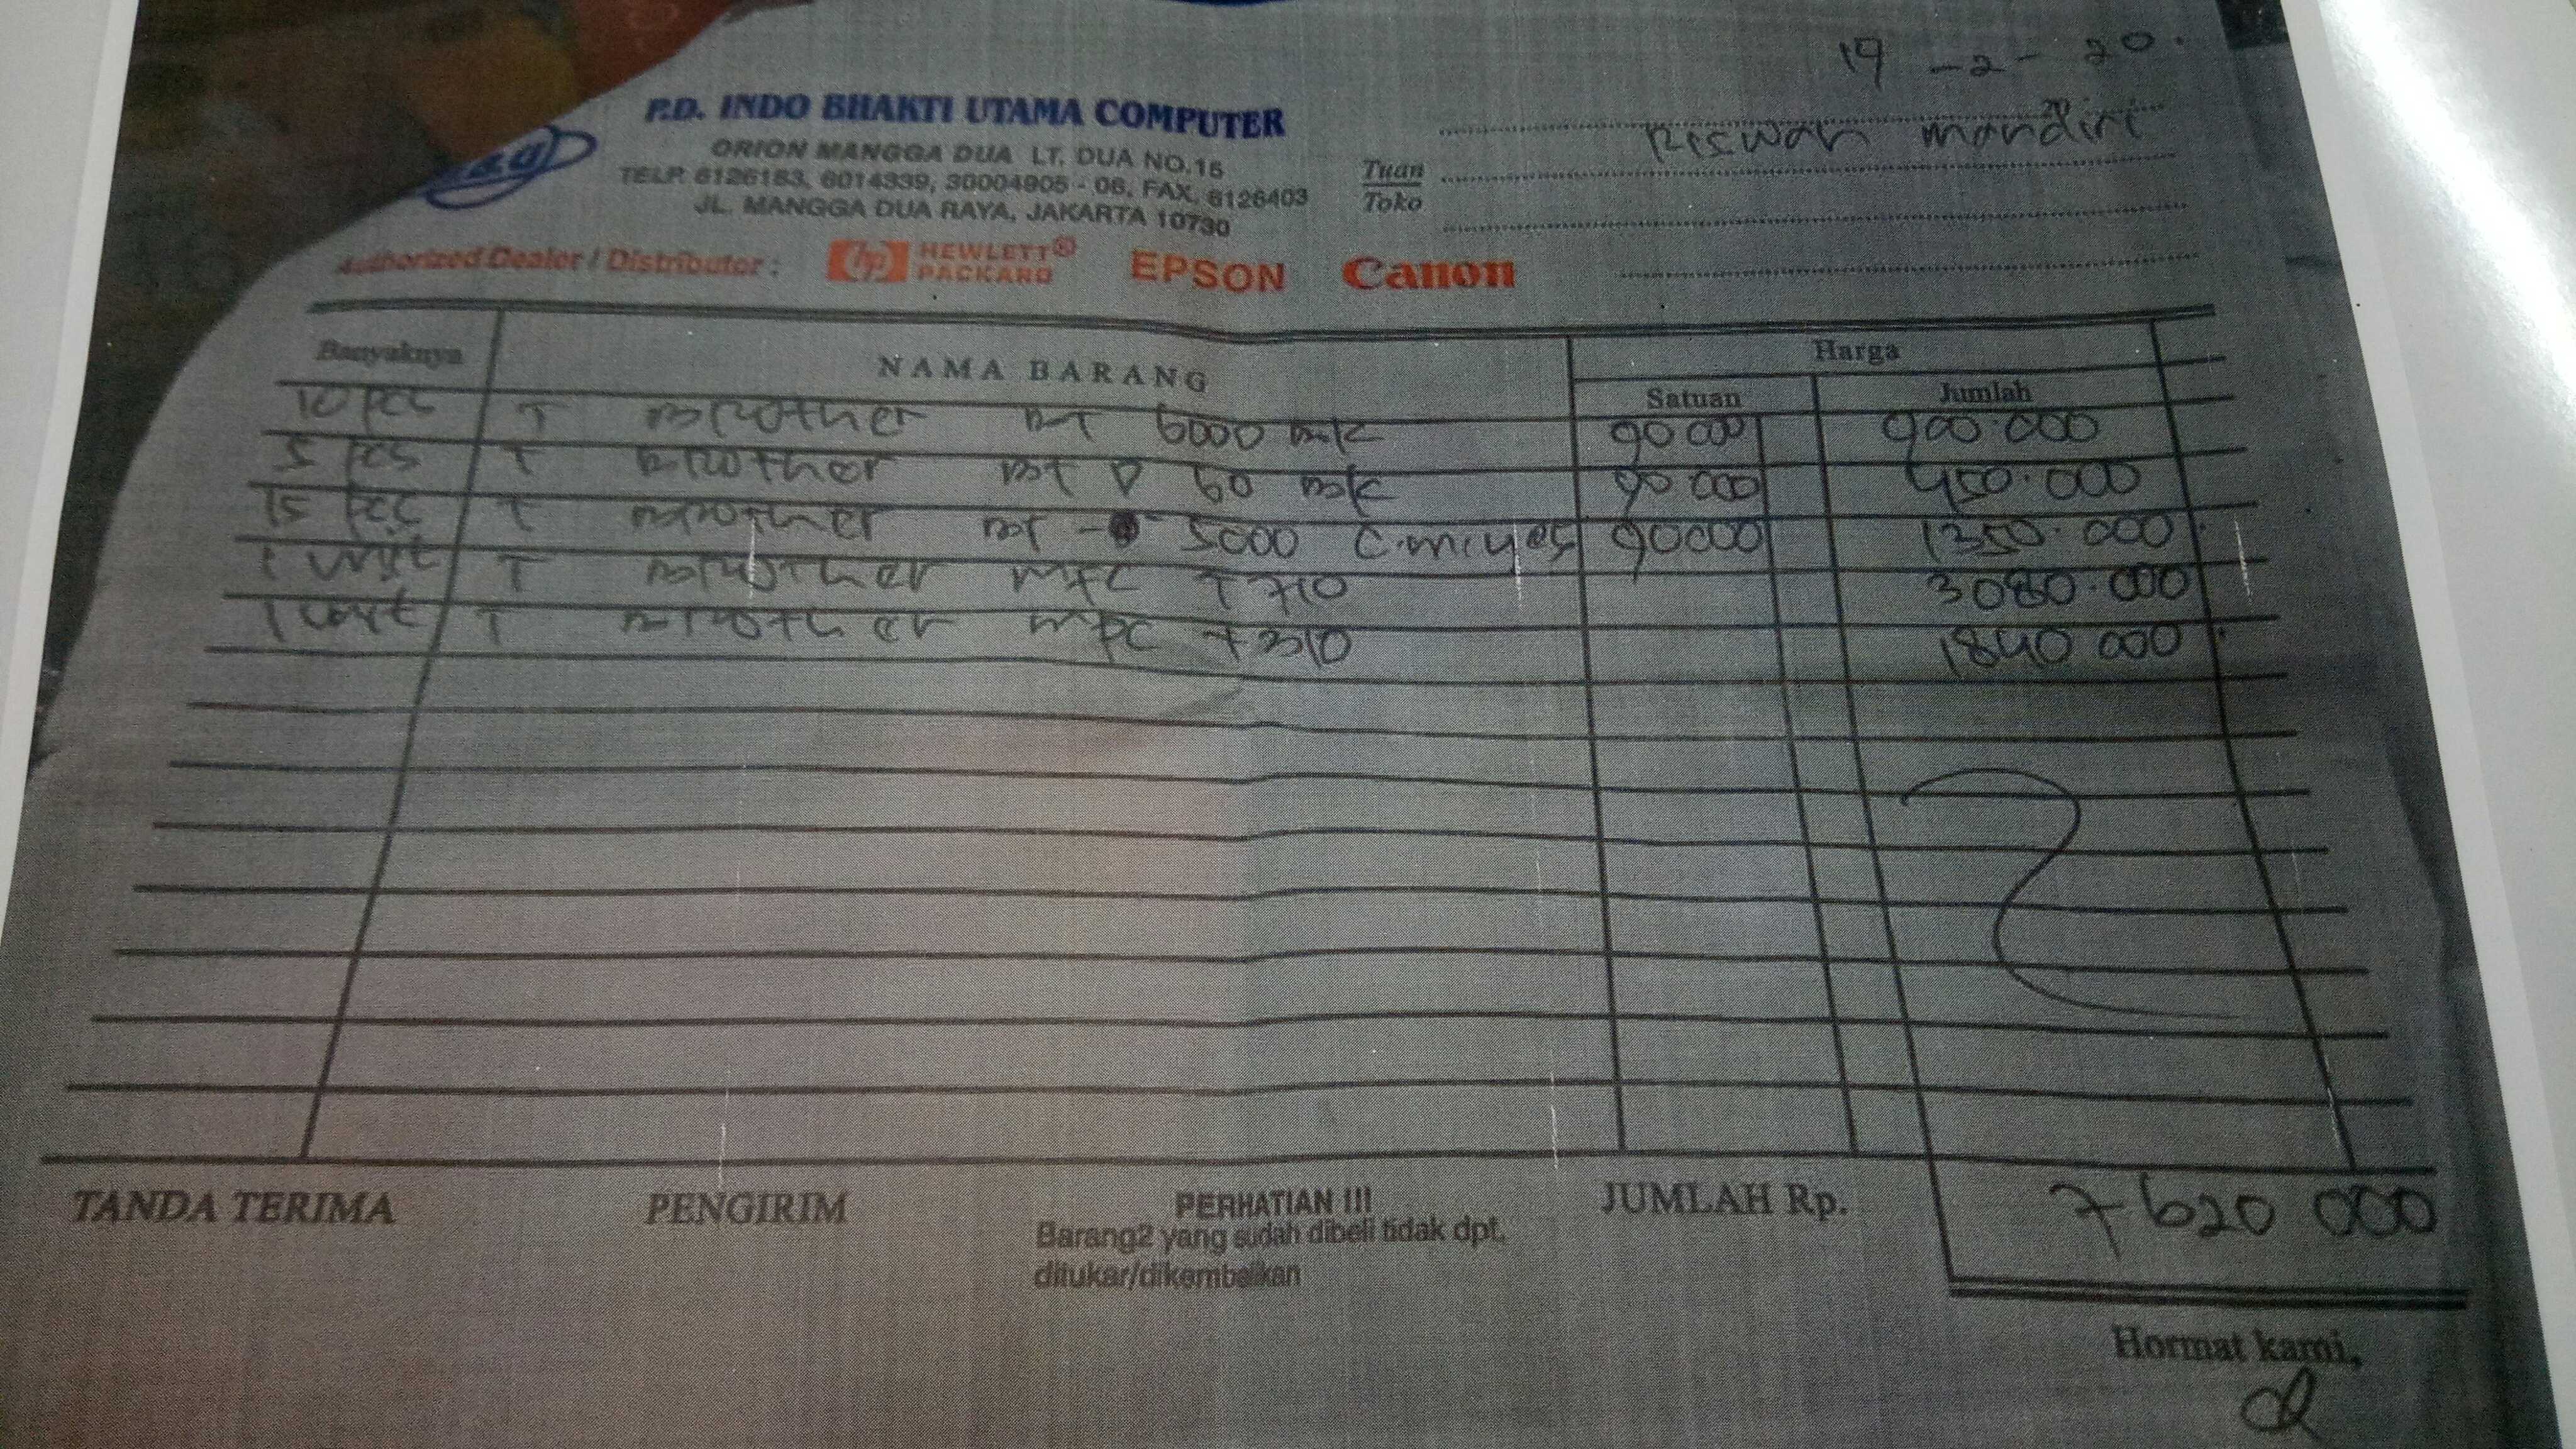 19 - 2 - 20.
P.D. INDO BHAKTI UTAMA COMPUTER
ORION MANGGA DUA LT. DUA NO.15
TELP. 6126183, 6014339, 30004905 - 06, FAX. 6126403
JL. MANGGA DUA RAYA, JAKARTA 10730
20
Tuan Riswan mandiri
Toko
Authorized Dealer / Distributor : hp HEWLETT® PACKARD EPSON Canon
Banyaknya NAMA BARANG Harga
Satuan Jumlah
10 pcs T Brother BT 6000 BK 90 000 900.000
5 pcs T Brother BT D 60 BK 90 000 450.000
15 pcs T Brother BT - 5000 90000 1350.000
1 unit T Brother MFC T 710 3080.000
1 unit T Brother T 310 1840 000
TANDA TERIMA PENGIRIM PERHATIAN !!! JUMLAH Rp. 7 620 000
Barang2 yang sudah dibeli tidak dpt.
ditukar/dikembalikan
Hormat kami,